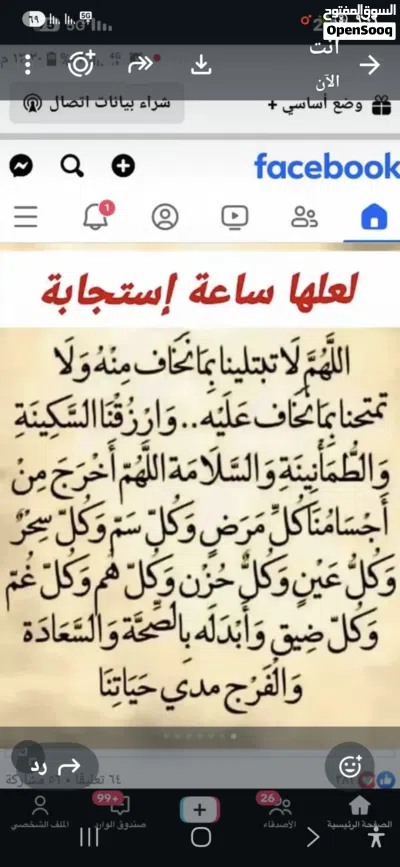 السوق المفتوح
OpenSooq
5G
٦٩
أنت
الآن
4G
شراء بيانات اتصال
وضع أساسي +
facebook
1
لعلها ساعة إستجابة
اللَّهُمَّ لَا تبتلينا بِمَا نَخَاف مِنْهُ وَلَا
تمتحنا بِمَا نَخَاف عَلَيْه.. وَارْزُقْنَا السَّكِينَةِ
وَالطُّمَأْنِينَةِ وَالسَّلَامَة اللَّهُمّ أَخْرَجَ مِنْ
أَجْسَامُنَا كُلِّ مَرَضٍ وَكُلّ سَمّ وَكُلّ سِحْرٌ
وَكُلُّ عَيْنٍ وَكُلٌّ حُزْن وَكُلّ هُم وَكُلّ غُمّ
وَكُلّ ضِيق وَأَبْدَلَه بِالصِّحَّة وَالسَّعَادَة
وَالْفَرْج مدي حَيَاتِنَا
رد
٦٤ تعليقًا • ٥١ مشاركة
الصفحة الرئيسية
26
الأصدقاء
99+
صندوق الوارد
الملف الشخصي